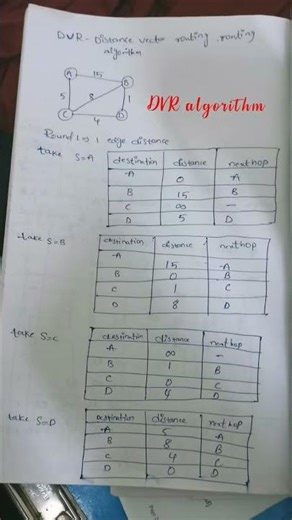 DVR - Distance vector routing routing
algorithm
A 15 B
5 8 1
C 4 D
DVR algorithm
Round 1 is 1 edge distance
take S=A
destination distance next hop
A 0 A
B 15 B
C ∞ -
D 5 D
take S=B
destination distance next hop
A 15 A
B 0 B
C 1 C
D 8 D
take S=C
destination distance next hop
A ∞ -
B 1 B
C 0 C
D 4 D
take S=D
destination distance next hop
A 5 A
B 8 B
C 4 C
D 0 D